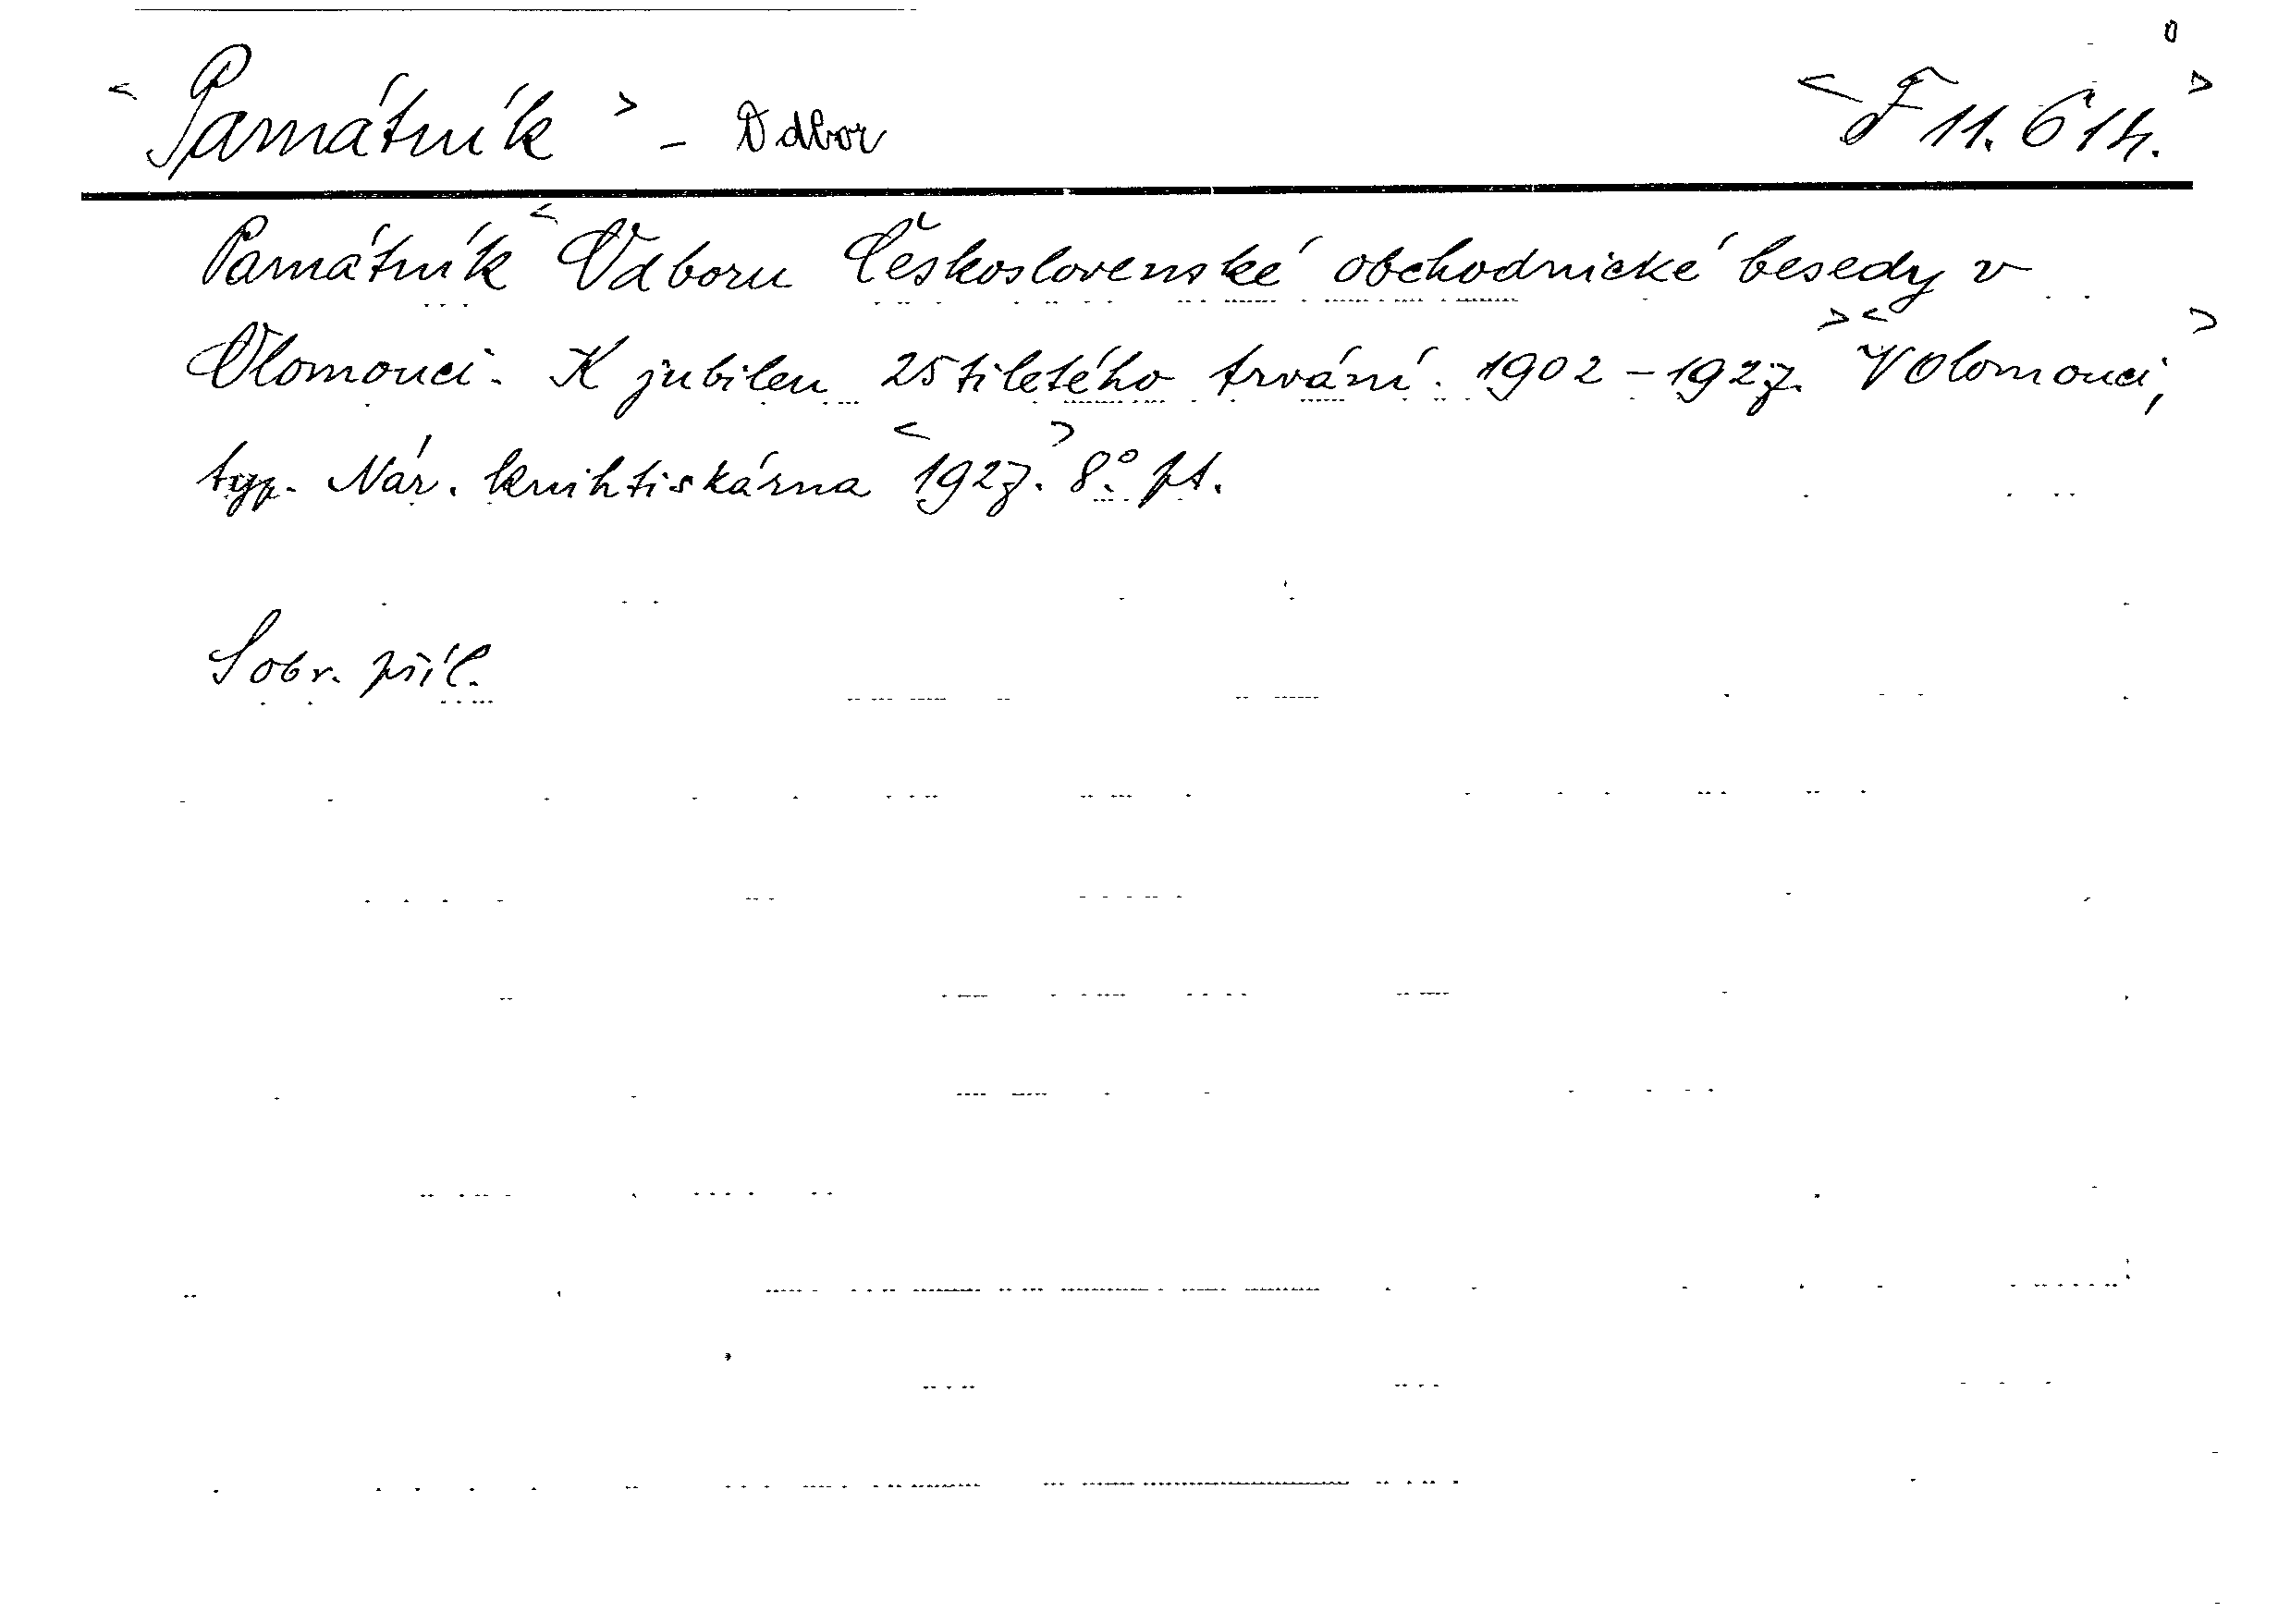 < Památník > - Odbor < F 11.614. >
Památník < Odboru Československé obchodnické besedy v
Olomouci. K jubileu 25tiletého trvání. 1902-1927. > < V Olomouci, >
typ. Nár. knihtiskárna < 1927. > 8° pt.
S obr. příl.